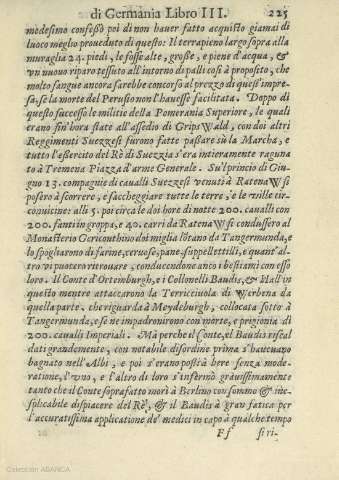 di Germania Libro III. 225
medesimo confessò poi di non hauer fatto acquisto giamai di
luoco meglio proueduto di questo: Il terrapieno largo sopra alla
muraglia 24. piedi, le fosse alte, große, e piene d'acqua, &
vn nuouo riparo tessuto all'intorno di palli così à proposito, che
molto sangue ancora sarebbe concorso al prezzo di quest'impre-
sa, se la morte del Perusi non l'hauesse facilitata. Doppo di
questo successo le militie della Pomerania Superiore, le quali
erano sin'hora state all'assedio di GripsWald, con doi altri
Reggimenti Suezzesi furono fatte paßare sù la Marcha, e
tutto l'eßercito del Rè di Suezzia s'era intieramente raguna
to à Tremena Piazza d'arme Generale. Su'l princio di Giu
gno 13. compagnie di caualli Suezzesi venuti à RatenaW si
posero à scorrere, e saccheggiare tutte le terre, e le ville cir-
conuicine: alli 5. poi circa le doi hore di notte 200. caualli con
200. fanti in groppa, e 40. carri da RatenaW si condussero al
Monasterio Gericonthino doi miglia lõtano da Tangermunda, e
lo spogliarono di farine, ceruose, pane, suppellettili, e quant'al-
tro vi puotero ritrouare, conducendone anco i bestiami con esso
loro. Il Conte d'Ortemburgh, e i Collonelli Baudis, & Hall in
questo mentre attaccarono la Terricciuola di Werbena da
quella parte, che riguarda à Meydeburgh, collocata sotto à
Tangermunda, e se ne impadronirono con morte, e prigionia di
200. caualli Imperiali. Mà perche il Conte, el Baudis riscal
dati grandemente, con notabile disordine prima s'haueuano
bagnato nell'Albi, e poi s'erano posti à bere senza mode-
ratione, l'vno, e l'altro di loro s'infermò grauissimamente
tanto che il Conte soprafatto morì à Berlino con sommo, & ine-
splicabile dispiacere del Rè, & il Baudis à gran fatica per
l'accuratissima applicatione de' medici in capo à qualche tempo
Ff si ri-
Colección ABANCA